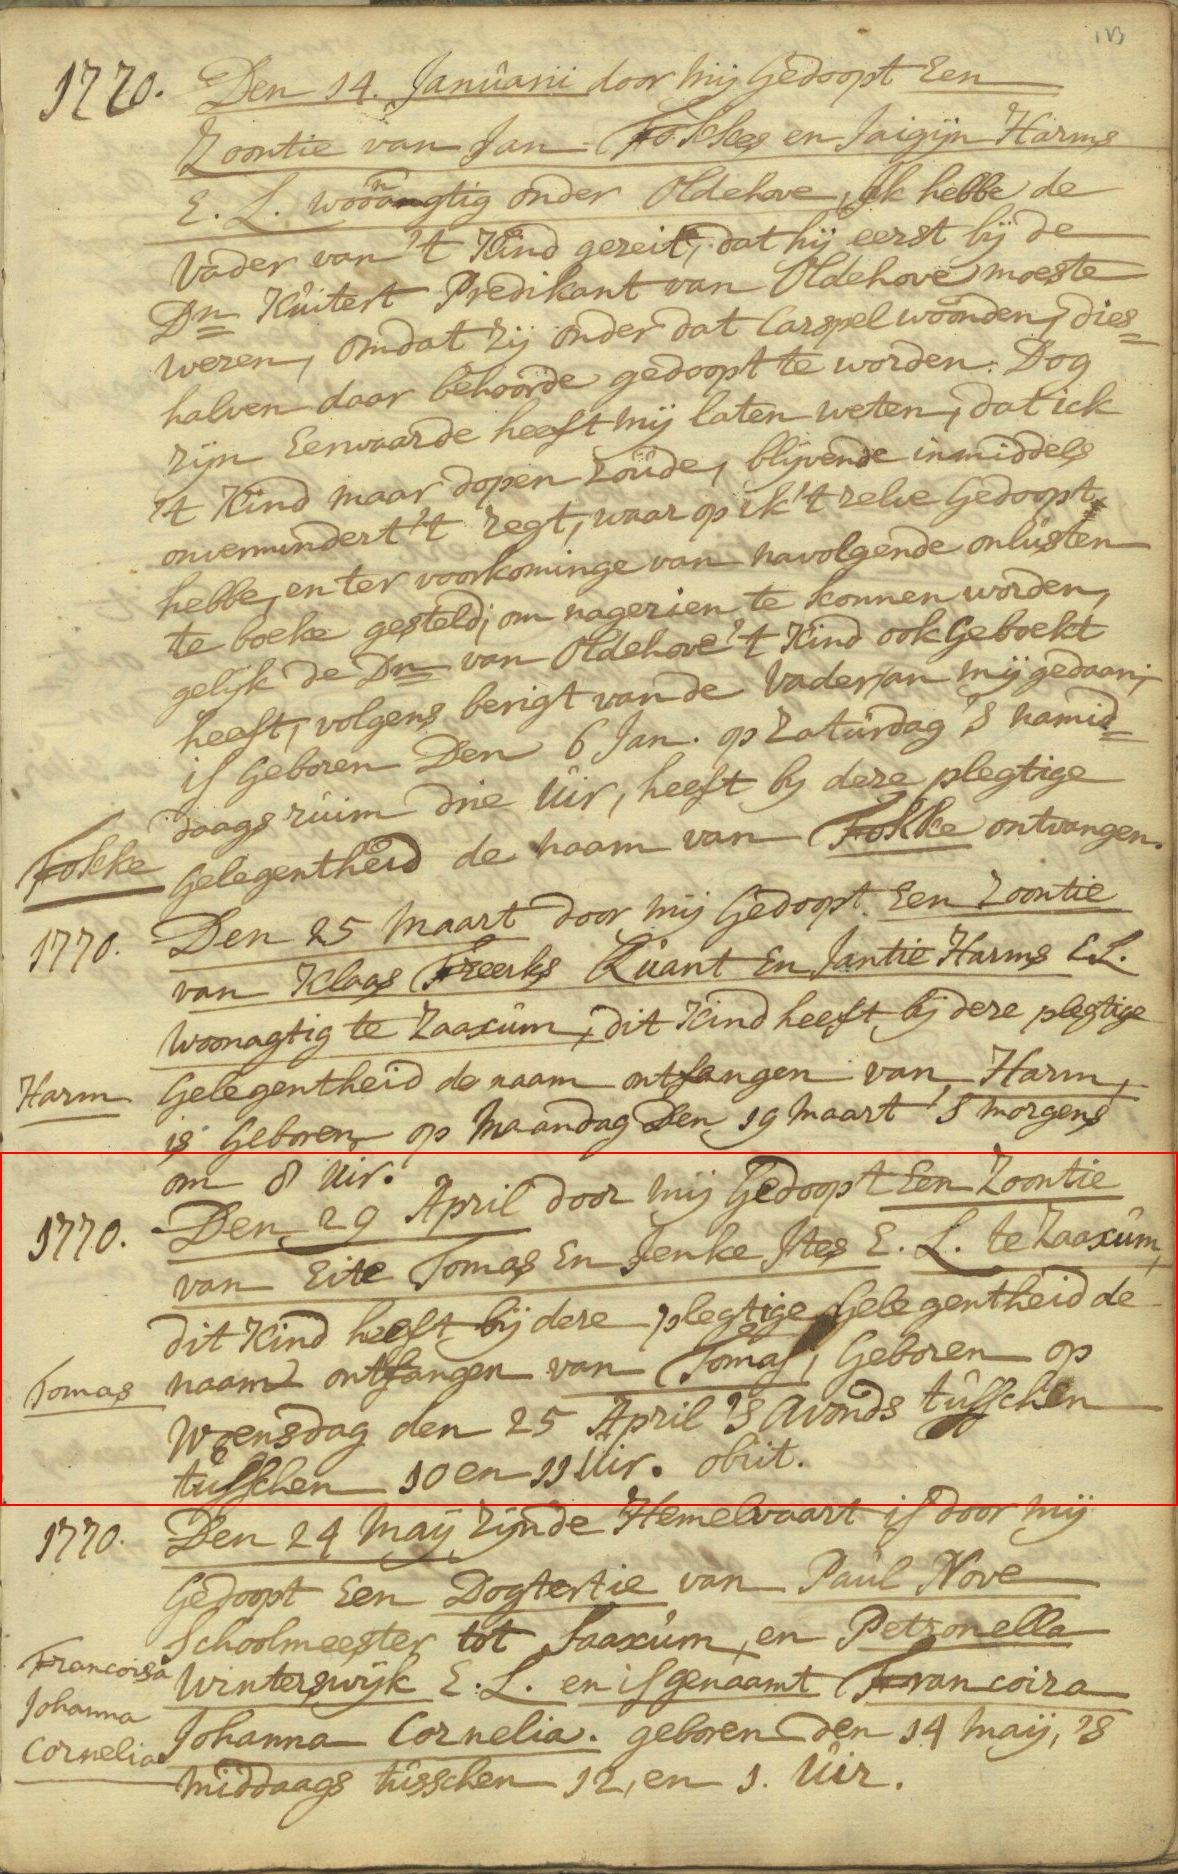 1770. Den 14. Januarii door mij Gedoopt Een
Zoontie van Jan Fokkes en Jaigijn Harms
E. L. woonagtig onder Oldehove, Ik hebbe de
Vader van 't Kind gezeit, dat hij eerst bij de
Dn Kuitert Predikant van Oldehove moeste
wezen, omdat zij onder dat Carspel woonden, dies=
halven daar behoorde gedoopt te worden. Dog
zijn Eerwaarde heeft mij laten weten, dat ick
't Kind maar dopen zoude, blijvende inmiddels
onvermindert 't regt, waar op ik 't zelve Gedoopt
hebbe, en ter voorkominge van navolgende onlusten
te boeke gesteld, om nagezien te konnen worden,
gelijk de Dn van Oldehove 't Kind ook Geboekt
heeft, volgens berigt van de Vader, an mij gedaan;
is Geboren Den 6 Jan. op Zaturdag 's namid=
daags ruim drie Uir, heeft bij deze plegtige
Fokke Gelegentheid de naam van Fokke ontvangen.
1770. Den 25 Maart door mij Gedoopt Een Zoontie
van Klaas Freerks Quant En Jantie Harms E L.
Woonagtig te Zaaxum, dit Kind heeft bij deze plegtige
Harm Gelegentheid de naam ontfangen van Harm,
is Geboren op Maandag Den 19 Maart 's morgens
om 8 Uir.
1770. Den 29 April door mij Gedoopt Een Zoontie
van Eite Tomas En Jenke Ites E. L. te Zaaxum,
dit Kind heeft bij deze plegtige Gelegentheid de
Tomas naam ontfangen van Tomas, Geboren op
Woensdag den 25 April 's Avonds tusschen
tusschen 10 en 11 Uir. obiit.
1770. Den 24 Maij, zijnde Hemelvaart is door mij
Gedoopt Een Dogtertie van Paul Nove
Schoolmeester tot Saaxum, en Petronella
Francoisa Winterswijk E. L. en is genaamt Francoiza
Johanna
Cornelia Johanna Cornelia. geboren den 14 Maij, 's
middaags tusschen 12, en 1. Uir.